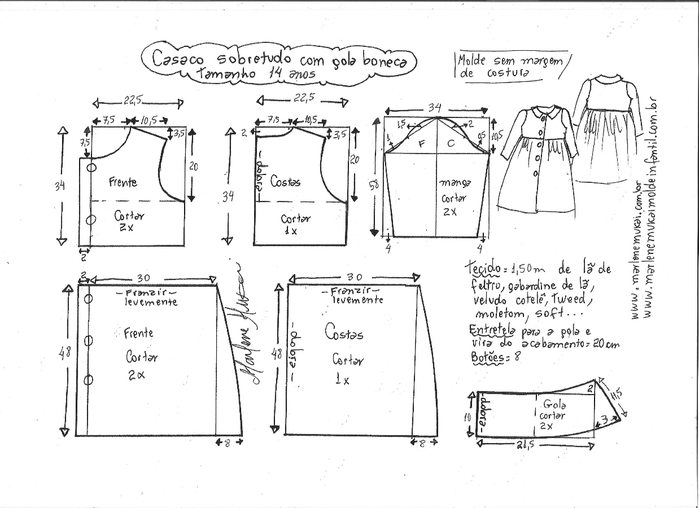 Casaco sobretudo com gola boneca
Tamanho 14 anos
Molde sem margem
de costura
22,5
7,5
10,5
7,5
3,5
20
34
Frente
Cortar
2x
2
22,5
7,5
10,5
2
3,5
20
34
-dobra-
Costas
Cortar
1x
34
1,5
2
1
0,5
F
C
10,5
58
manga
cortar
2x
4
4
www.marlenemukai.com.br
www.marlenemukaimoldeinfantil.com.br
2
30
-Franzir-
levemente
Frente
Cortar
2x
48
8
Marlene Mukai
30
-Franzir-
levemente
Costas
Cortar
1x
-dobra-
48
8
Tecido= 1,50m de lã de
feltro, gabardine de lã,
veludo cotelê, Tweed,
moletom, soft...
Entretela para a gola e
vira do acabamento= 20cm
Botões= 8
10
-dobra-
Gola
cortar
2x
2
11,5
3
21,5